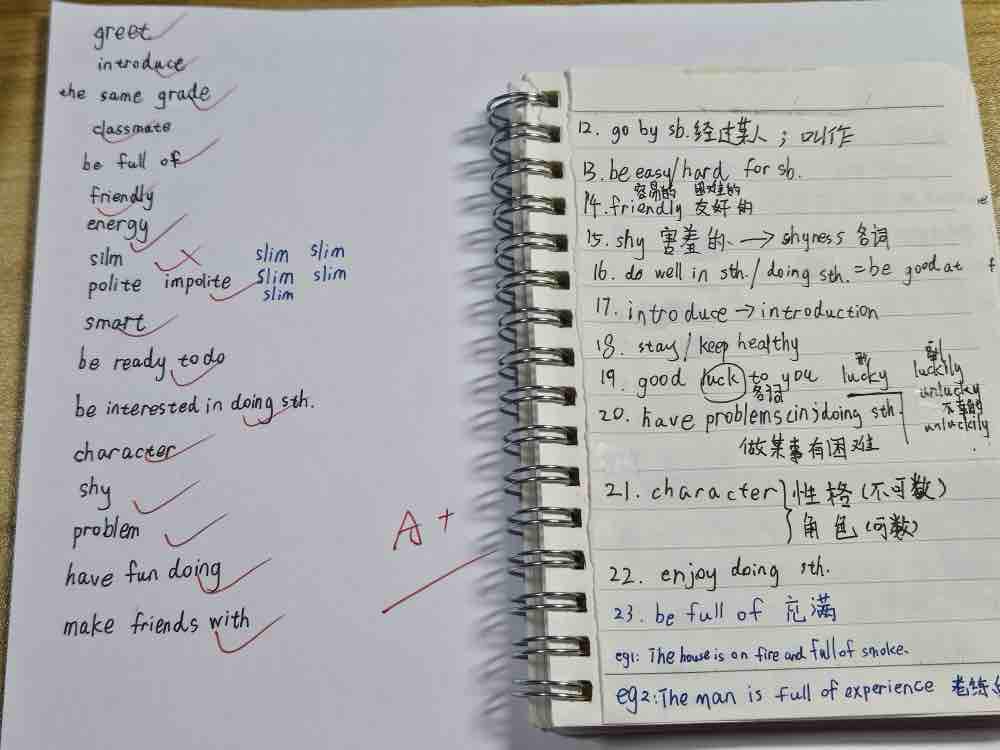 greet
introduce
the same grade
classmate
be full of
friendly
energy
silm
slim slim
polite impolite
slim slim
slim
smart
be ready to do
be interested in doing sth.
character
shy
problem
have fun doing
make friends with
A+
12. go by sb. 经过某人；叫作
13. be easy/hard for sb.
容易的 困难的
14. friendly 友好的
15. shy 害羞的 → shyness 名词
16. do well in sth./doing sth. = be good at
17. introduce → introduction
18. stay/keep healthy
19. good luck to you lucky luckily
名词
unlucky
不幸的
unluckily
20. have problems(in)doing sth
做某事有困难
21. character 性格(不可数)
角色(可数)
22. enjoy doing sth.
23. be full of 充满
eg1: The house is on fire and full of smoke.
eg2: The man is full of experience 老练